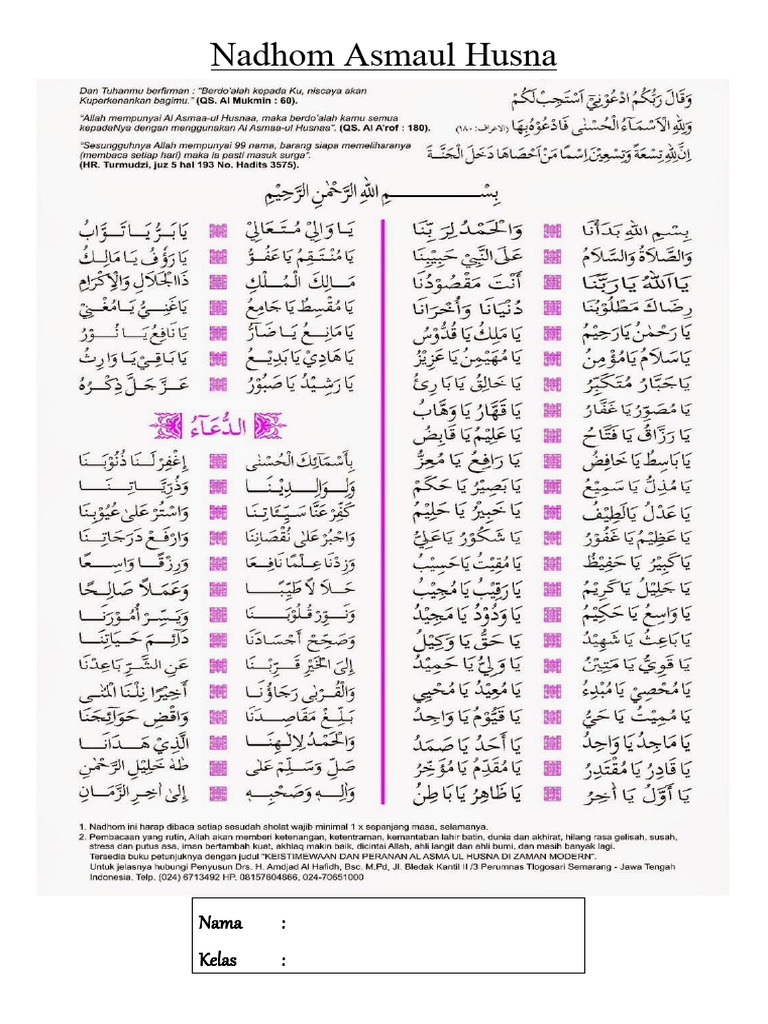 Nadhom Asmaul Husna
Dan Tuhanmu berfirman : "Berdo'alah kepada Ku, niscaya akan
Kuperkenankan bagimu." (QS. Al Mukmin : 60).
وَقَالَ رَبُّكُمُ ادْعُوْنِيْٓ اَسْتَجِبْ لَكُمْ
"Allah mempunyai Al Asmaa-ul Husnaa, maka berdo'alah kamu semua
kepadaNya dengan menggunakan Al Asmaa-ul Husnas". (QS. Al A'rof : 180).
وَلِلّٰهِ الْاَسْمَآءُ الْحُسْنٰى فَادْعُوْهُ بِهَا (الاعراف: ١٨٠)
"Sesungguhnya Allah mempunyai 99 nama, barang siapa memeliharanya
(membaca setiap hari) maka ia pasti masuk surga".
(HR. Turmudzi, juz 5 hal 193 No. Hadits 3575).
اِنَّ لِلّٰهِ تِسْعَةً وَتِسْعِيْنَ اِسْمًا مَنْ اَحْصَاهَا دَخَلَ الْجَنَّةَ
بِسْمِ اللهِ الرَّحْمٰنِ الرَّحِيْمِ
بِسْمِ اللهِ بَدَأْنَا وَالْحَمْدُ لِرَبِّنَا
وَالصَّلَاةُ وَالسَّلَامُ عَلَى النَّبِيِّ حَبِيْبِنَا
يَا اَللهُ يَا رَبَّنَا اَنْتَ مَقْصُوْدُنَا
رِضَاكَ مَطْلُوْبُنَا دُنْيَانَا وَأُخْرَانَا
يَا رَحْمٰنُ يَا رَحِيْمُ يَا مَلِكُ يَا قُدُّوْسُ
يَا سَلَامُ يَا مُؤْمِنُ يَا مُهَيْمِنُ يَا عَزِيْزُ
يَا جَبَّارُ مُتَكَبِّرُ يَا خَالِقُ يَا بَارِئُ
يَا مُصَوِّرُ يَا غَفَّارُ يَا قَهَّارُ يَا وَهَّابُ
يَا رَزَّاقُ يَا فَتَّاحُ يَا عَلِيْمُ يَا قَابِضُ
يَا بَاسِطُ يَا خَافِضُ يَا رَافِعُ يَا مُعِزُّ
يَا مُذِلُّ يَا سَمِيْعُ يَا بَصِيْرُ يَا حَكَمْ
يَا عَدْلُ يَا لَطِيْفُ يَا خَبِيْرُ يَا حَلِيْمُ
يَا عَظِيْمُ يَا غَفُوْرُ يَا شَكُوْرُ يَا عَلِيُّ
يَا كَبِيْرُ يَا حَفِيْظُ يَا مُقِيْتُ يَا حَسِيْبُ
يَا جَلِيْلُ يَا كَرِيْمُ يَا رَقِيْبُ يَا مُجِيْبُ
يَا وَاسِعُ يَا حَكِيْمُ يَا وَدُوْدُ يَا مَجِيْدُ
يَا بَاعِثُ يَا شَهِيْدُ يَا حَقُّ يَا وَكِيْلُ
يَا قَوِيُّ يَا مَتِيْنُ يَا وَلِيُّ يَا حَمِيْدُ
يَا مُحْصِيْ يَا مُبْدِءُ يَا مُعِيْدُ يَا مُحْيِي
يَا مُمِيْتُ يَا حَيُّ يَا قَيُّوْمُ يَا وَاجِدُ
يَا مَاجِدُ يَا وَاحِدُ يَا أَحَدُ يَا صَمَدُ
يَا قَادِرُ يَا مُقْتَدِرُ يَا مُقَدِّمُ يَا مُؤَخِّرُ
يَا أَوَّلُ يَا اٰخِرُ يَا ظَاهِرُ يَا بَاطِنُ
يَا وَالِيْ مُتَعَالِيْ يَا بَرُّ يَا تَوَّابُ
يَا مُنْتَقِمُ يَا عَفُوُّ يَا رَؤُفُ يَا مَالِكُ
مَالِكَ الْمُلْكِ ذَا الْجَلَالِ وَالْاِكْرَامِ
يَا مُقْسِطُ يَا جَامِعُ يَا غَنِيُّ يَا مُغْنِيْ
يَا مَانِعُ يَا ضَآرُّ يَا نَافِعُ يَا نُوْرُ
يَا هَادِيْ يَا بَدِيْعُ يَا بَاقِيْ يَا وَارِثُ
يَا رَشِيْدُ يَا صَبُوْرُ عَزَّ جَلَّ ذِكْرُهُ
الدُّعَآءُ
بِأَسْمَائِكَ الْحُسْنٰى اِغْفِرْ لَنَا ذُنُوْبَنَا
وَلِوَالِدِيْنَا وَذُرِّيَّاتِنَا
كَفِّرْ عَنَّا سَيِّئَاتِنَا وَاسْتُرْ عَلٰى عُيُوْبِنَا
وَاجْبُرْ عَلٰى نُقْصَانِنَا وَارْفَعْ دَرَجَاتِنَا
وَزِدْنَا عِلْمًا نَافِعَا وَرِزْقًا وَاسِعًا
حَلَا لًا طَيِّبًا وَعَمَلًا صَالِحًا
وَنَوِّرْ قُلُوْبَنَا وَيَسِّرْ أُمُوْرَنَا
وَصَحِّحْ أَجْسَادَنَا دَآئِمَ حَيَاتِنَا
إِلَى الْخَيْرِ قَرِّبْنَا عَنِ الشَّرِّ بَاعِدْنَا
وَالْقُرْبٰى رَجَاؤُنَا أَخِيْرًا نِلْنَا الْمُنٰى
بَلِّغْ مَقَاصِدَنَا وَاقْضِ حَوَائِجَنَا
وَالْحَمْدُ لِإِلٰهِنَا الَّذِيْ هَدَانَا
صَلِّ وَسَلِّمْ عَلٰى طٰهٰ خَلِيْلِ الرَّحْمٰنِ
وَاٰلِهٖ وَصَحْبِهٖ إِلٰى اٰخِرِ الزَّمَانِ
1. Nadhom ini harap dibaca setiap sesudah sholat wajib minimal 1 x sepanjang masa, selamanya.
2. Pembacaan yang rutin, Allah akan memberi ketenangan, ketentraman, kemantaban lahir batin, dunia dan akhirat, hilang rasa gelisah, susah,
stress dan putus asa, iman bertambah kuat, akhlaq makin baik, dicintai Allah, ahli langit dan ahli bumi, dan masih banyak lagi.
Tersedia buku petunjuknya dengan judul "KEISTIMEWAAN DAN PERANAN AL ASMA UL HUSNA DI ZAMAN MODERN".
Untuk jelasnya hubungi Penyusun Drs. H. Amdjad Al Hafidh, Bsc. M.Pd, Jl. Bledak Kantil II /3 Perumnas Tlogosari Semarang - Jawa Tengah
Indonesia. Telp. (024) 6713492 HP. 08157604866, 024-70651000
Nama :
Kelas :